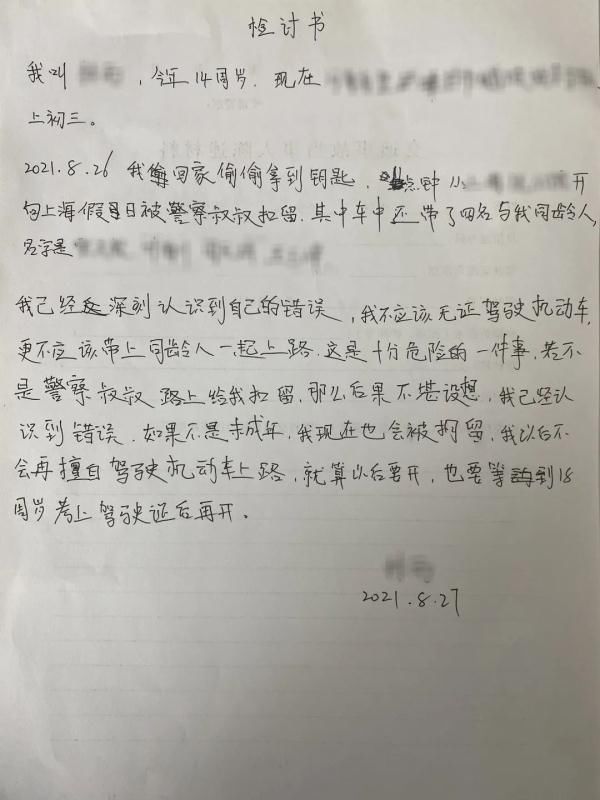 检讨书
我叫 ，今年14周岁．现在
上初三。
2021.8.26 我回家偷偷拿到钥匙， 点钟从 开
向上海假日被警察叔叔扣留．其中车中还带了四名与我同龄人，
名字是
我已经深刻认识到自己的错误，我不应该无证驾驶机动车，
更不应该带上同龄人一起上路．这是十分危险的一件事，若不
是警察叔叔路上给我扣留，那么后果不堪设想，我已经认
识到错误．如果不是未成年，我现在也会被拘留，我以后不
会再擅自驾驶机动车上路，就算以后要开，也要等到18
周岁考上驾驶证后再开。
2021.8.27